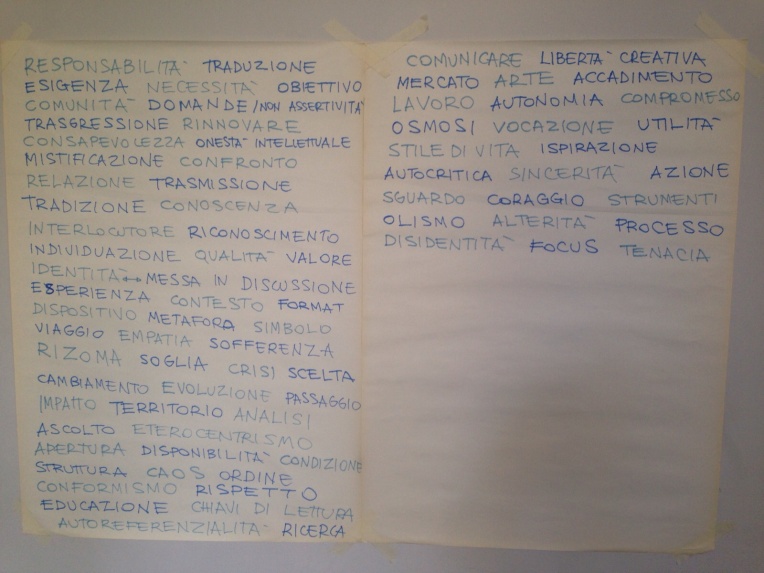 RESPONSABILITÀ TRADUZIONE
ESIGENZA NECESSITÀ OBIETTIVO
COMUNITÀ DOMANDE/NON ASSERTIVITÀ
TRASGRESSIONE RINNOVARE
CONSAPEVOLEZZA ONESTÀ INTELLETTUALE
MISTIFICAZIONE CONFRONTO
RELAZIONE TRASMISSIONE
TRADIZIONE CONOSCENZA
INTERLOCUTORE RICONOSCIMENTO
INDIVIDUAZIONE QUALITÀ VALORE
IDENTITÀ ↔ MESSA IN DISCUSSIONE
ESPERIENZA CONTESTO FORMAT
DISPOSITIVO METAFORA SIMBOLO
VIAGGIO EMPATIA SOFFERENZA
RIZOMA SOGLIA CRISI SCELTA
CAMBIAMENTO EVOLUZIONE PASSAGGIO
IMPATTO TERRITORIO ANALISI
ASCOLTO ETEROCENTRISMO
APERTURA DISPONIBILITÀ CONDIZIONE
STRUTTURA CAOS ORDINE
CONFORMISMO RISPETTO
EDUCAZIONE CHIAVI DI LETTURA
AUTOREFERENZIALITÀ RICERCA
COMUNICARE LIBERTÀ CREATIVA
MERCATO ARTE ACCADIMENTO
LAVORO AUTONOMIA COMPROMESSO
OSMOSI VOCAZIONE UTILITÀ
STILE DI VITA ISPIRAZIONE
AUTOCRITICA SINCERITÀ AZIONE
SGUARDO CORAGGIO STRUMENTI
OLISMO ALTERITÀ PROCESSO
DISIDENTITÀ FOCUS TENACIA